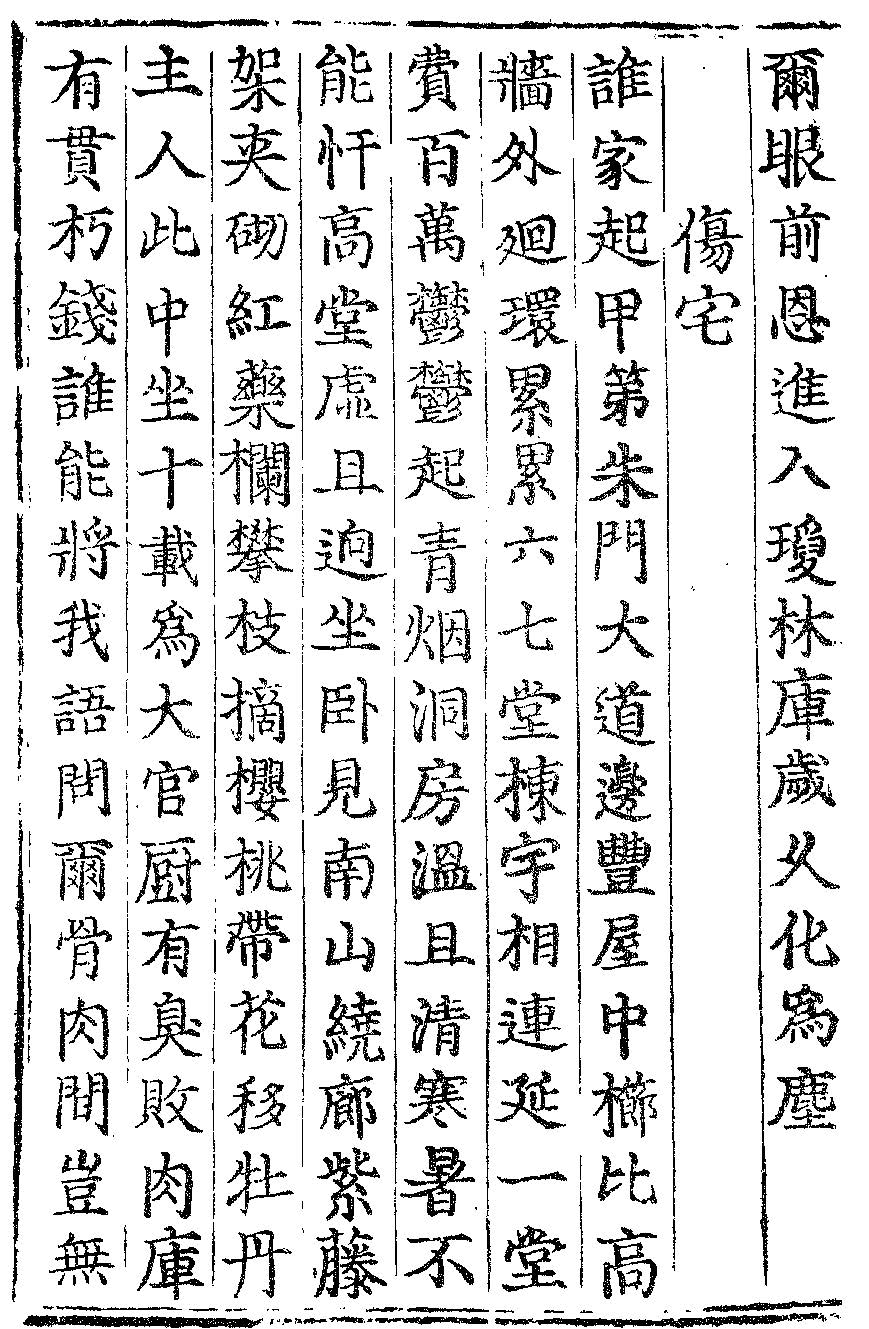 爾眼前恩進入瓊林庫歲久化爲塵
傷宅
誰家起甲第朱門大道邊豐屋中櫛比高
牆外廻環累累六七堂棟宇相連延一堂
費百萬鬱鬱起青烟洞房溫且清寒暑不
能忓高堂虛且逈坐卧見南山繞廊紫藤
架夾砌紅藥欄攀枝摘櫻桃帶花移牡丹
主人此中坐十載爲大官厨有臭敗肉庫
有貫朽錢誰能將我語問爾骨肉間豈無